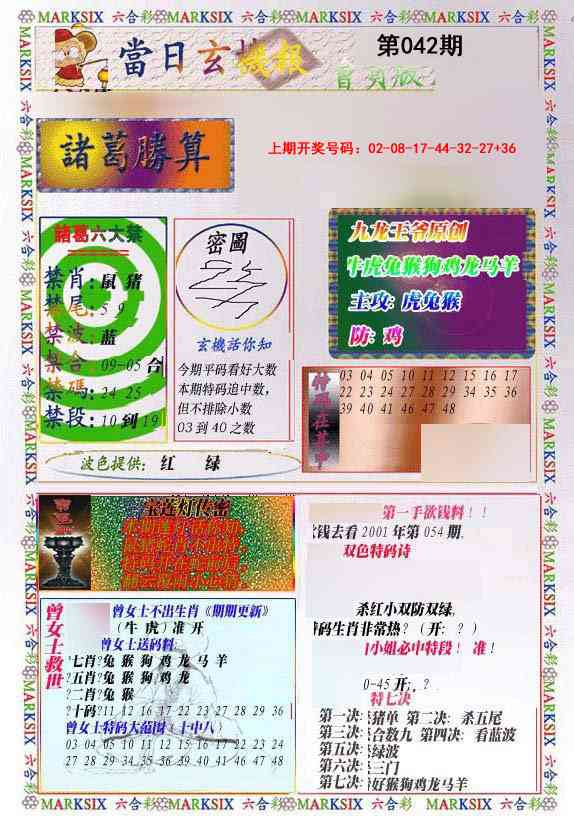 MARKSIX 六合彩 MARKSIX 六合彩 MARKSIX 六合彩 MARKSIX 六合彩
當日玄機報
第042期
首頁版
諸葛勝算
上期开奖号码：02-08-17-44-32-27+36
諸葛六大禁
禁肖：鼠 猪
禁尾：5 9
禁波：蓝
禁合：09-05 合
禁碼：24 25
禁段：10 到 19
密圖
玄機話你知
今期平码看好大数
本期特码追中数，
但不排除小数
03 到 40 之数
九龙王爷原创
牛虎兔猴狗鸡龙马羊
主攻：虎兔猴
防：鸡
03 04 05 10 11 12 15 16 17
22 23 24 27 28 29 34 35 36
39 40 41 46 47 48
波色提供：红 绿
宝莲灯传密
第一手欲钱料！！
欲钱去看 2001 年第 054 期，
双色特码诗
杀红小双防双绿，
特码生肖非常热？（开：？）
小姐必中特段！ 准！
0-45 开：？
特七决
第一决：猪单 第二决：杀五尾
第三决：合数九 第四决：看蓝波
第五决：绿波
第六决：三门
第七决：好猴狗鸡龙马羊
曾女士救世
曾女士不出生肖《期期更新》
（牛 虎）准 开
曾女士送码料：
七肖?兔 猴 狗 鸡 龙 马 羊
五肖?兔 猴 狗 鸡 龙
二肖?兔 猴
十码?11 12 16 17 22 23 27 28 29 36
曾女士特码大范围（十中八）
03 04 05 10 11 12 15 16 17 22 23 24
27 28 29 34 35 36 39 40 41 46 47 48
MARKSIX 六合彩 MARKSIX 六合彩 MARKSIX 六合彩 MARKSIX 六合彩